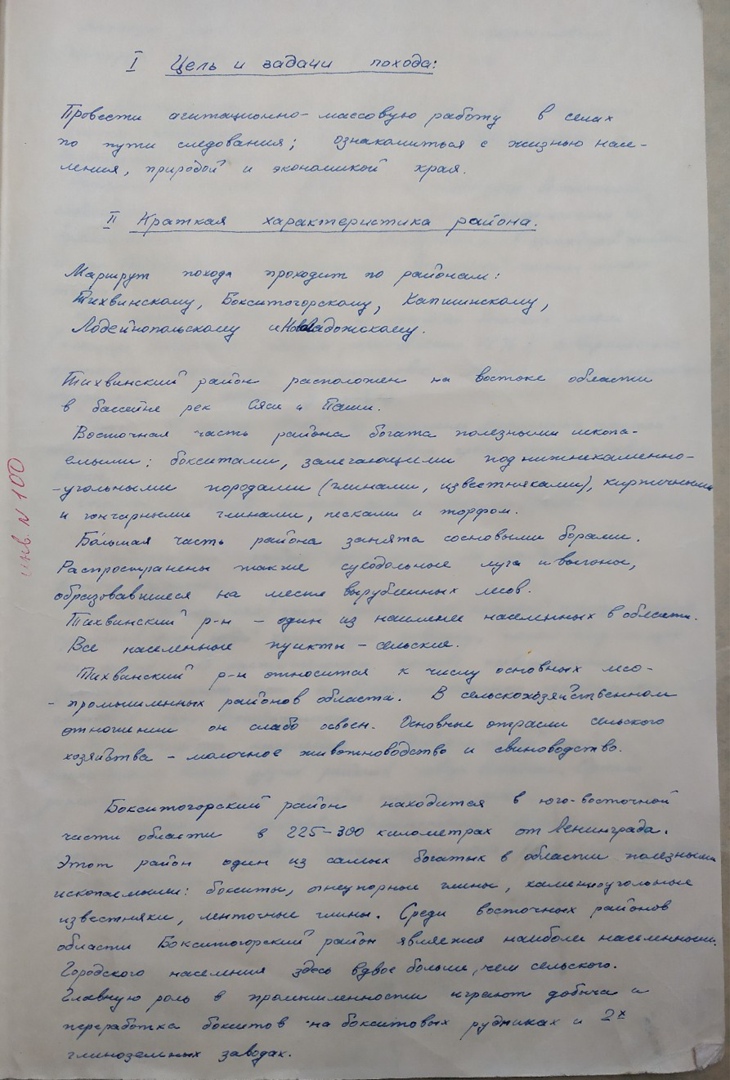 I Цель и задачи похода:
Провести агитационно-массовую работу в селах
по пути следования; ознакомиться с жизнью насе-
ления, природой и экономикой края.
II Краткая характеристика района.
Маршрут похода проходит по районам:
Тихвинскому, Бокситогорскому, Капшинскому,
Лодейнопольскому и Новоладожскому.
Тихвинский район расположен на востоке области
в бассейне рек Сяси и Паши.
Восточная часть района богата полезными ископа-
емыми: бокситами, залегающими под нижнекаменно-
-угольными породами (глинами, известняками), кирпичными
и гончарными глинами, песками и торфом.
Бо́льшая часть района занята сосновыми борами.
Распространены также суходольные луга и выгоны,
образовавшиеся на месте вырубленных лесов.
Тихвинский р-н – один из наименее населенных в области.
Все населенные пункты – сельские.
Тихвинский р-н относится к числу основных лесо-
-промышленных районов области. В сельскохозяйственном
отношении он слабо освоен. Основные отрасли сельского
хозяйства – молочное животноводство и свиноводство.
Бокситогорский район находится в юго-восточной
части области в 225-300 километрах от Ленинграда.
Этот район один из самых богатых в области полезными
ископаемыми: бокситы, огнеупорные глины, каменноугольные
известняки, ленточные глины. Среди восточных районов
области Бокситогорский район является наиболее населенным.
Городского населения здесь вдвое больше, чем сельского.
Главную роль в промышленности играют добыча и
переработка бокситов на бокситовых рудниках и 2х
глиноземных заводах.
инв. N 100